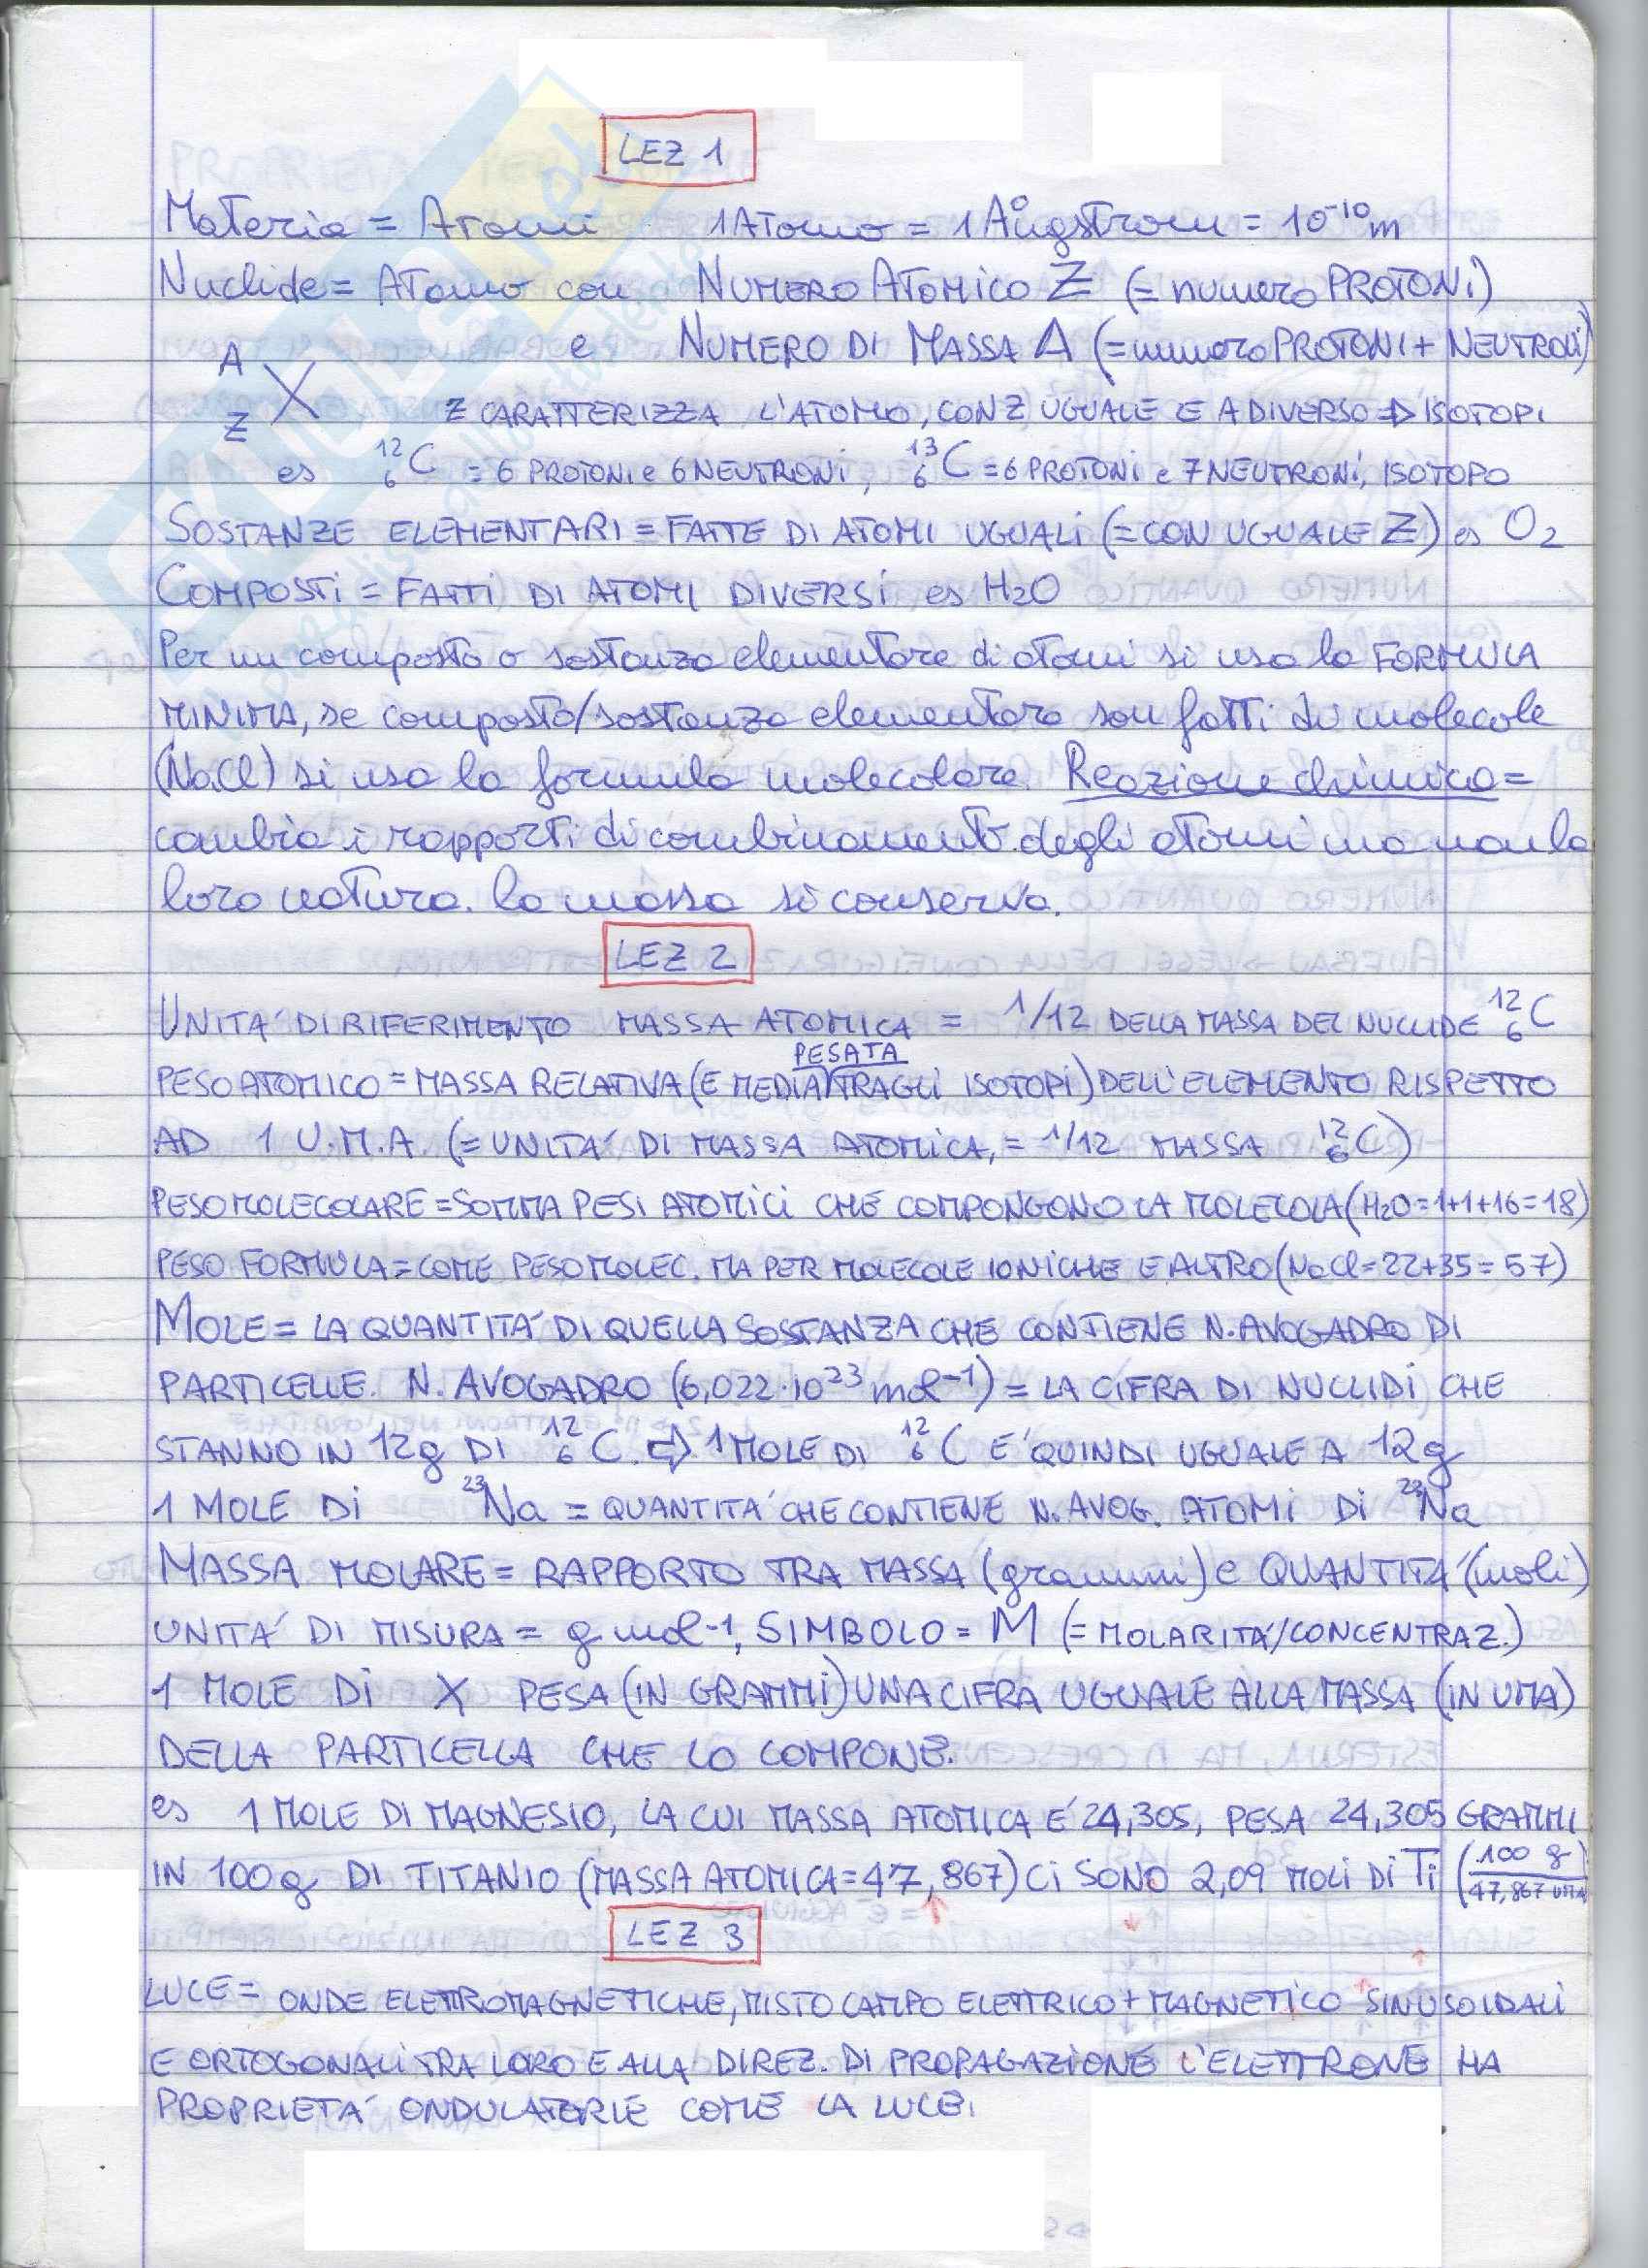 LEZ 1
Materia = Atomi 1 Atomo = 1 Ångstrom = 10⁻¹⁰ m
Nuclide = Atomo con NUMERO ATOMICO Z (= numero PROTONI)
e NUMERO DI MASSA A (= numero PROTONI + NEUTRONI)
A
Z X Z CARATTERIZZA L'ATOMO, CON Z UGUALE E A DIVERSO ⇒ ISOTOPI
es ¹²₆C = 6 PROTONI e 6 NEUTRONI, ¹³₆C = 6 PROTONI e 7 NEUTRONI, ISOTOPO
SOSTANZE ELEMENTARI = FATTE DI ATOMI UGUALI (= CON UGUALE Z) es O₂
COMPOSTI = FATTI DI ATOMI DIVERSI es H₂O
Per un composto o sostanza elementare di atomi si usa la FORMULA
MINIMA, se composto/sostanza elementare son fatti di molecole
(NaCl) si usa la formula molecolare. Reazione chimica =
cambia i rapporti di combinamento degli atomi ma non la
loro natura. la massa si conserva.
LEZ 2
UNITA' DI RIFERIMENTO MASSA ATOMICA = 1/12 DELLA MASSA DEL NUCLIDE ¹²₆C
PESATA
PESO ATOMICO = MASSA RELATIVA (E MEDIA) (TRA GLI ISOTOPI) DELL'ELEMENTO RISPETTO
AD 1 U.M.A. (= UNITA' DI MASSA ATOMICA, = 1/12 MASSA ¹²₆C)
PESO MOLECOLARE = SOMMA PESI ATOMICI CHE COMPONGONO LA MOLECOLA (H₂O = 1+1+16 = 18)
PESO FORMULA = COME PESO MOLEC. MA PER MOLECOLE IONICHE E ALTRO (NaCl = 22+35 = 57)
MOLE = LA QUANTITA' DI QUELLA SOSTANZA CHE CONTIENE N. AVOGADRO DI
PARTICELLE. N. AVOGADRO (6,022·10²³ mol⁻¹) = LA CIFRA DI NUCLIDI CHE
STANNO IN 12g DI ¹²₆C. ⇒ 1 MOLE DI ¹²₆C E' QUINDI UGUALE A 12g
1 MOLE DI ²³Na = QUANTITA' CHE CONTIENE N. AVOG. ATOMI DI ²³Na
MASSA MOLARE = RAPPORTO TRA MASSA (grammi) e QUANTITA' (moli)
UNITA' DI MISURA = g mol⁻¹, SIMBOLO = M (= MOLARITA'/CONCENTRAZ.)
1 MOLE DI X PESA (IN GRAMMI) UNA CIFRA UGUALE ALLA MASSA (IN UMA)
DELLA PARTICELLA CHE LO COMPONE.
es 1 MOLE DI MAGNESIO, LA CUI MASSA ATOMICA E' 24,305, PESA 24,305 GRAMMI
IN 100g DI TITANIO (MASSA ATOMICA = 47,867) CI SONO 2,09 MOLI DI Ti (100 g / 47,867 UMA)
LEZ 3
LUCE = ONDE ELETTROMAGNETICHE, MISTO CAMPO ELETTRICO + MAGNETICO SINUSOIDALI
E ORTOGONALI TRA LORO E ALLA DIREZ. DI PROPAGAZIONE L'ELETTRONE HA
PROPRIETA' ONDULATORIE COME LA LUCE.